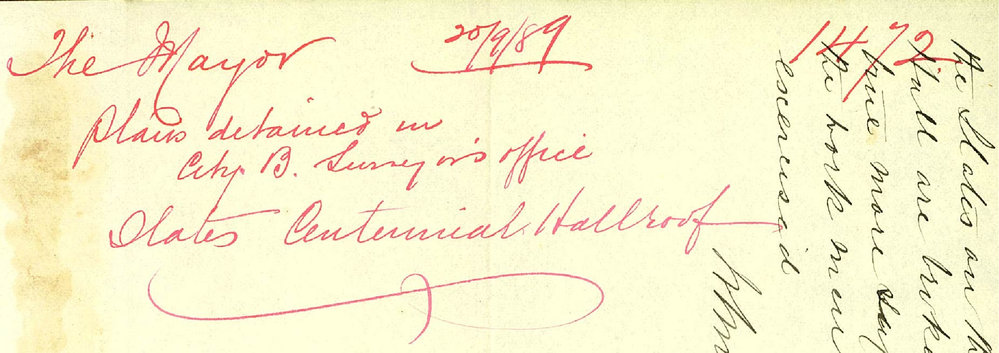 The Mayor 20/9/89 1472
Plans detained in
City B. Surveyor's office
Slates Centennial Hall roof
the Slates on th
Hall are broke
true more
the work men
exercised